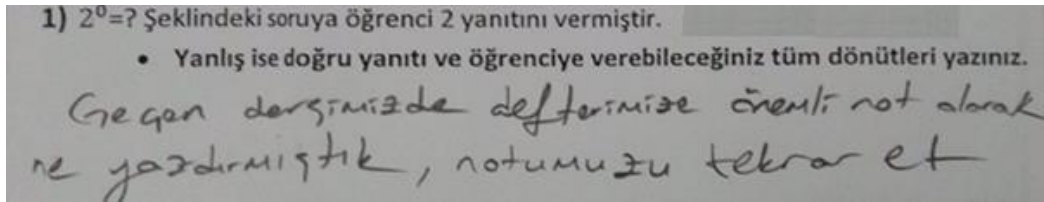 1) 2⁰=? Şeklindeki soruya öğrenci 2 yanıtını vermiştir.
• Yanlış ise doğru yanıtı ve öğrenciye verebileceğiniz tüm dönütleri yazınız.
Geçen dersimizde defterimize önemli not olarak
ne yazdırmıştık, notumuzu tekrar et